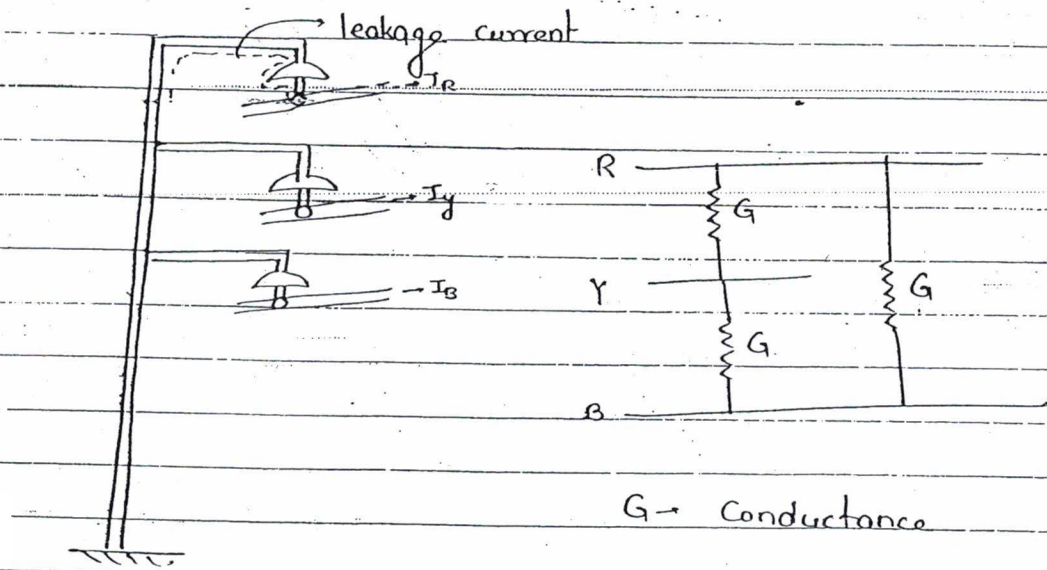 leakage current
I_R
I_y
I_B
R
G
Y
G
G
B
G → Conductance